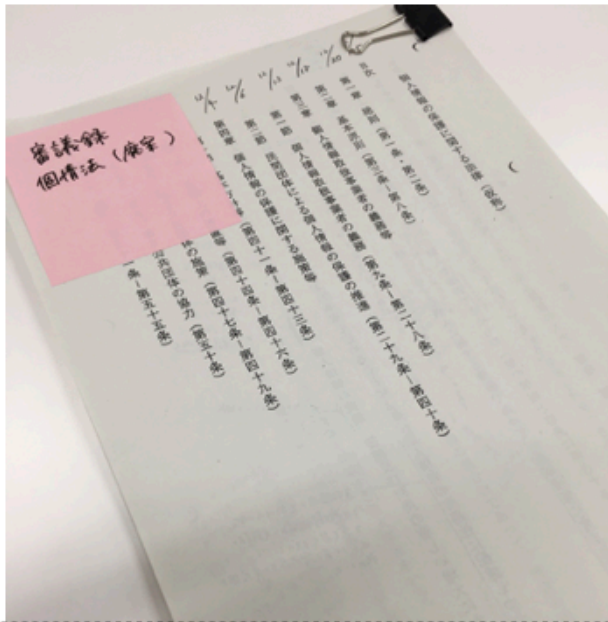 個人情報の保護に関する法律（仮称）
目次
第一章　総則（第一条・第二条）
第二章　基本原則（第三条―第八条）
第三章　個人情報取扱事業者の義務等
第一節　個人情報取扱事業者の義務（第九条―第二十八条）
第二節　民間団体による個人情報の保護の推進（第二十九条―第四十条）
第四章　個人情報の保護に関する施策等
（第四十一条―第四十三条）
等（第四十四条―第四十六条）
の施策（第四十七条―第四十九条）
公共団体の協力（第五十条）
条―第五十五条）
12/20
12/18
12/12
12/6
12/4
審議録
個情法（廃案）